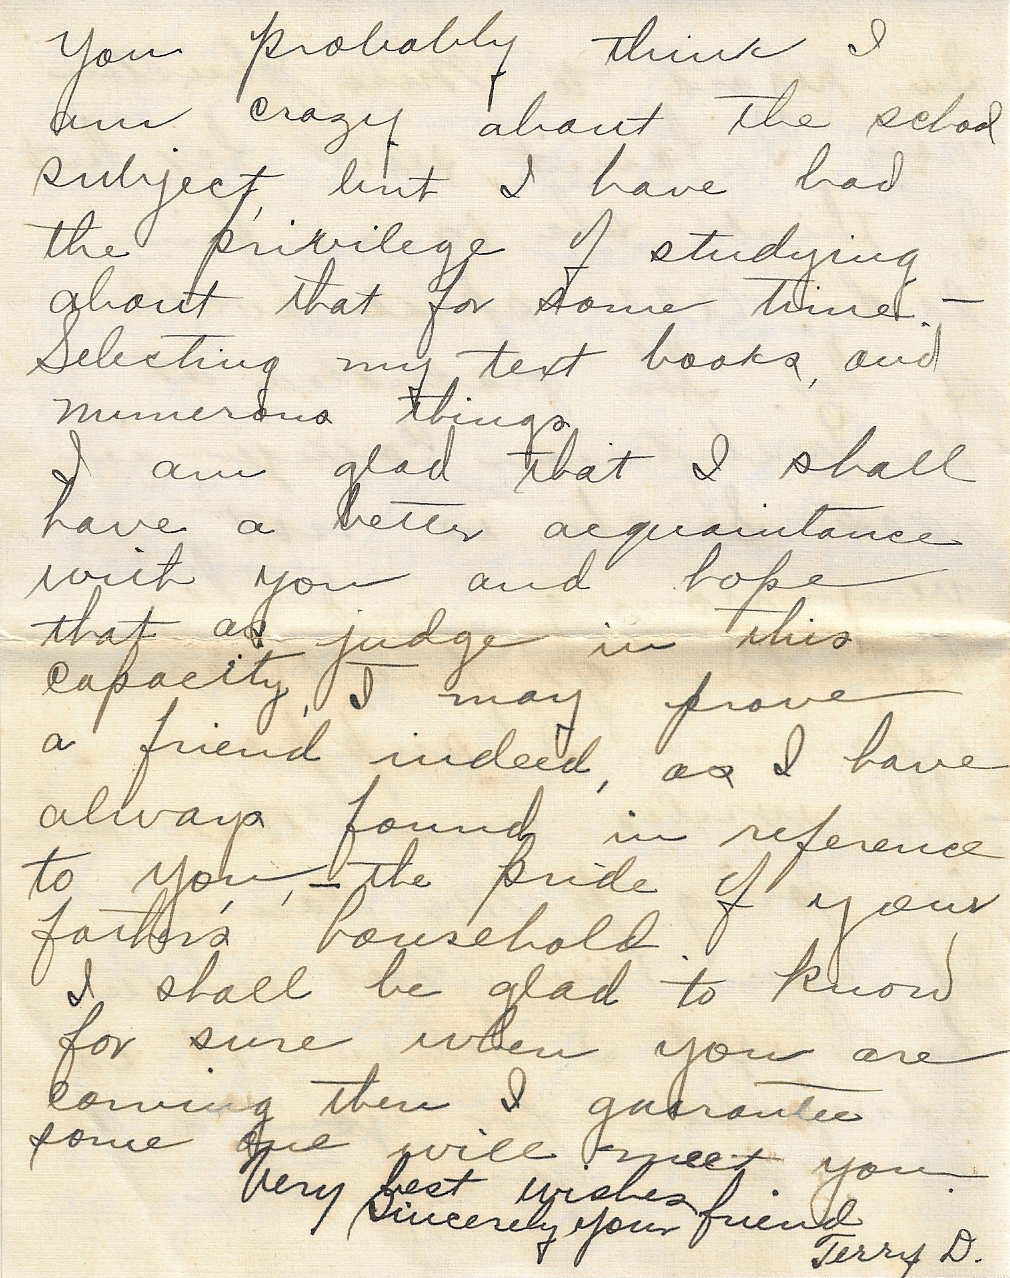 You probably think I
am crazy about the school
subject, but I have had
the privilege of studying
about that for some time. -
Selecting my text books, and
numerous things.
I am glad that I shall
have a better acquaintance
with you and hope
that as judge in this
capacity, I may prove
a friend indeed, as I have
always found in reference
to you, - the pride of your
father's household
I shall be glad to know
for sure when you are
coming then I guarantee
some one will meet you.
Very best wishes
Sincerely your friend
Terry D.